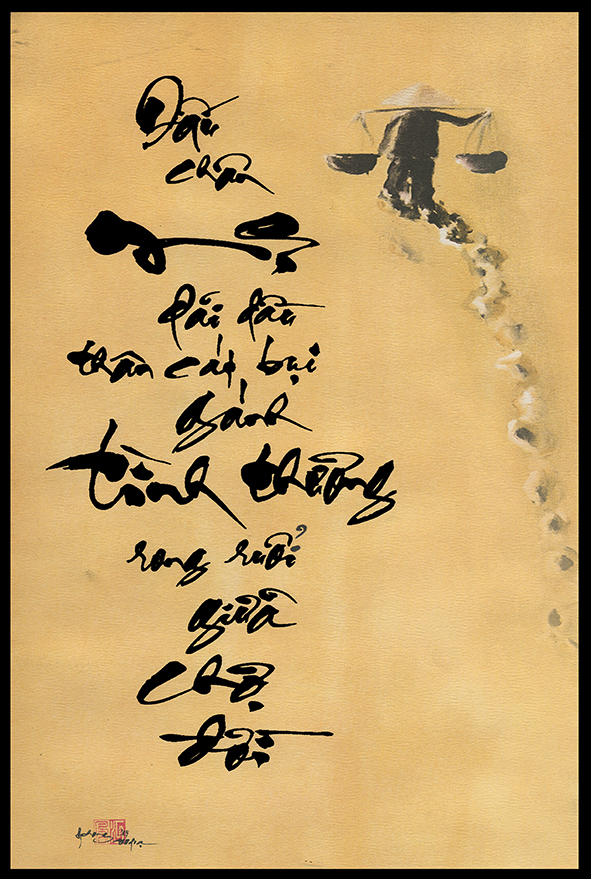 Dấu
chân
mẹ
dãi dầu
thân cát bụi
gánh
tình thương
rong ruổi
giữa
chợ
đời